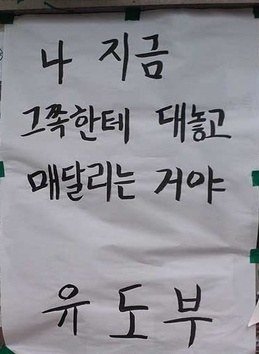 나 지금
그쪽한테 대놓고
매달리는 거야
유도부